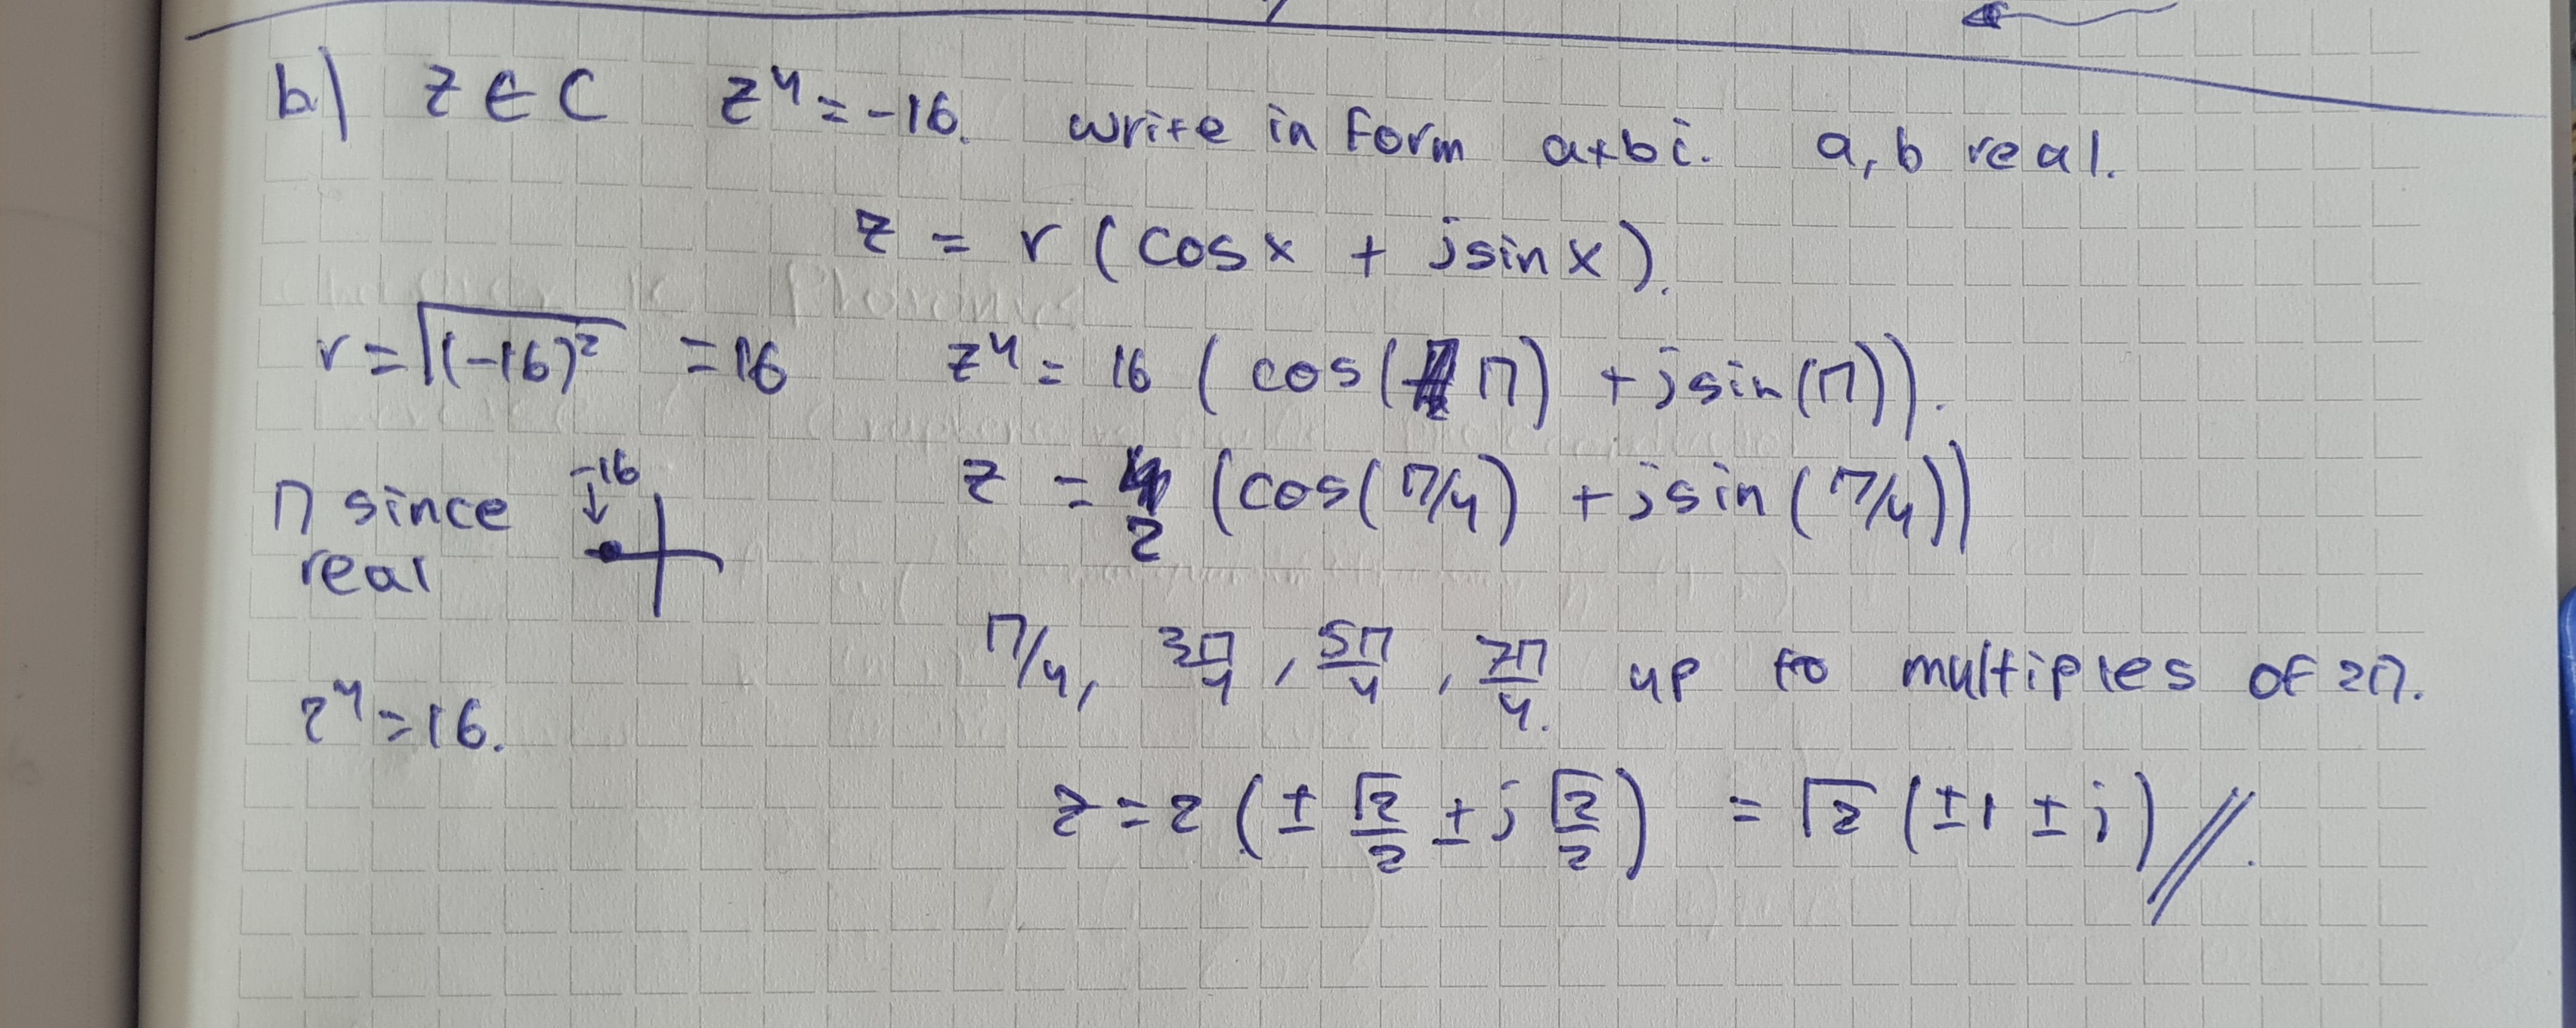 b) z ∈ C z⁴ = -16. write in form a+bi. a, b real.
z = r (cosx + jsinx).
r = √(-16)² = 16 z⁴ = 16 (cos(π) + jsin(π)).
-16
π since real
z = 2 (cos(π/4) + jsin(π/4))
π/4, 3π/4, 5π/4, 7π/4. up to multiples of 2π.
z⁴ = 16.
z = 2 (± √2/2 ± j √2/2) = √2 (±1 ± j) //.